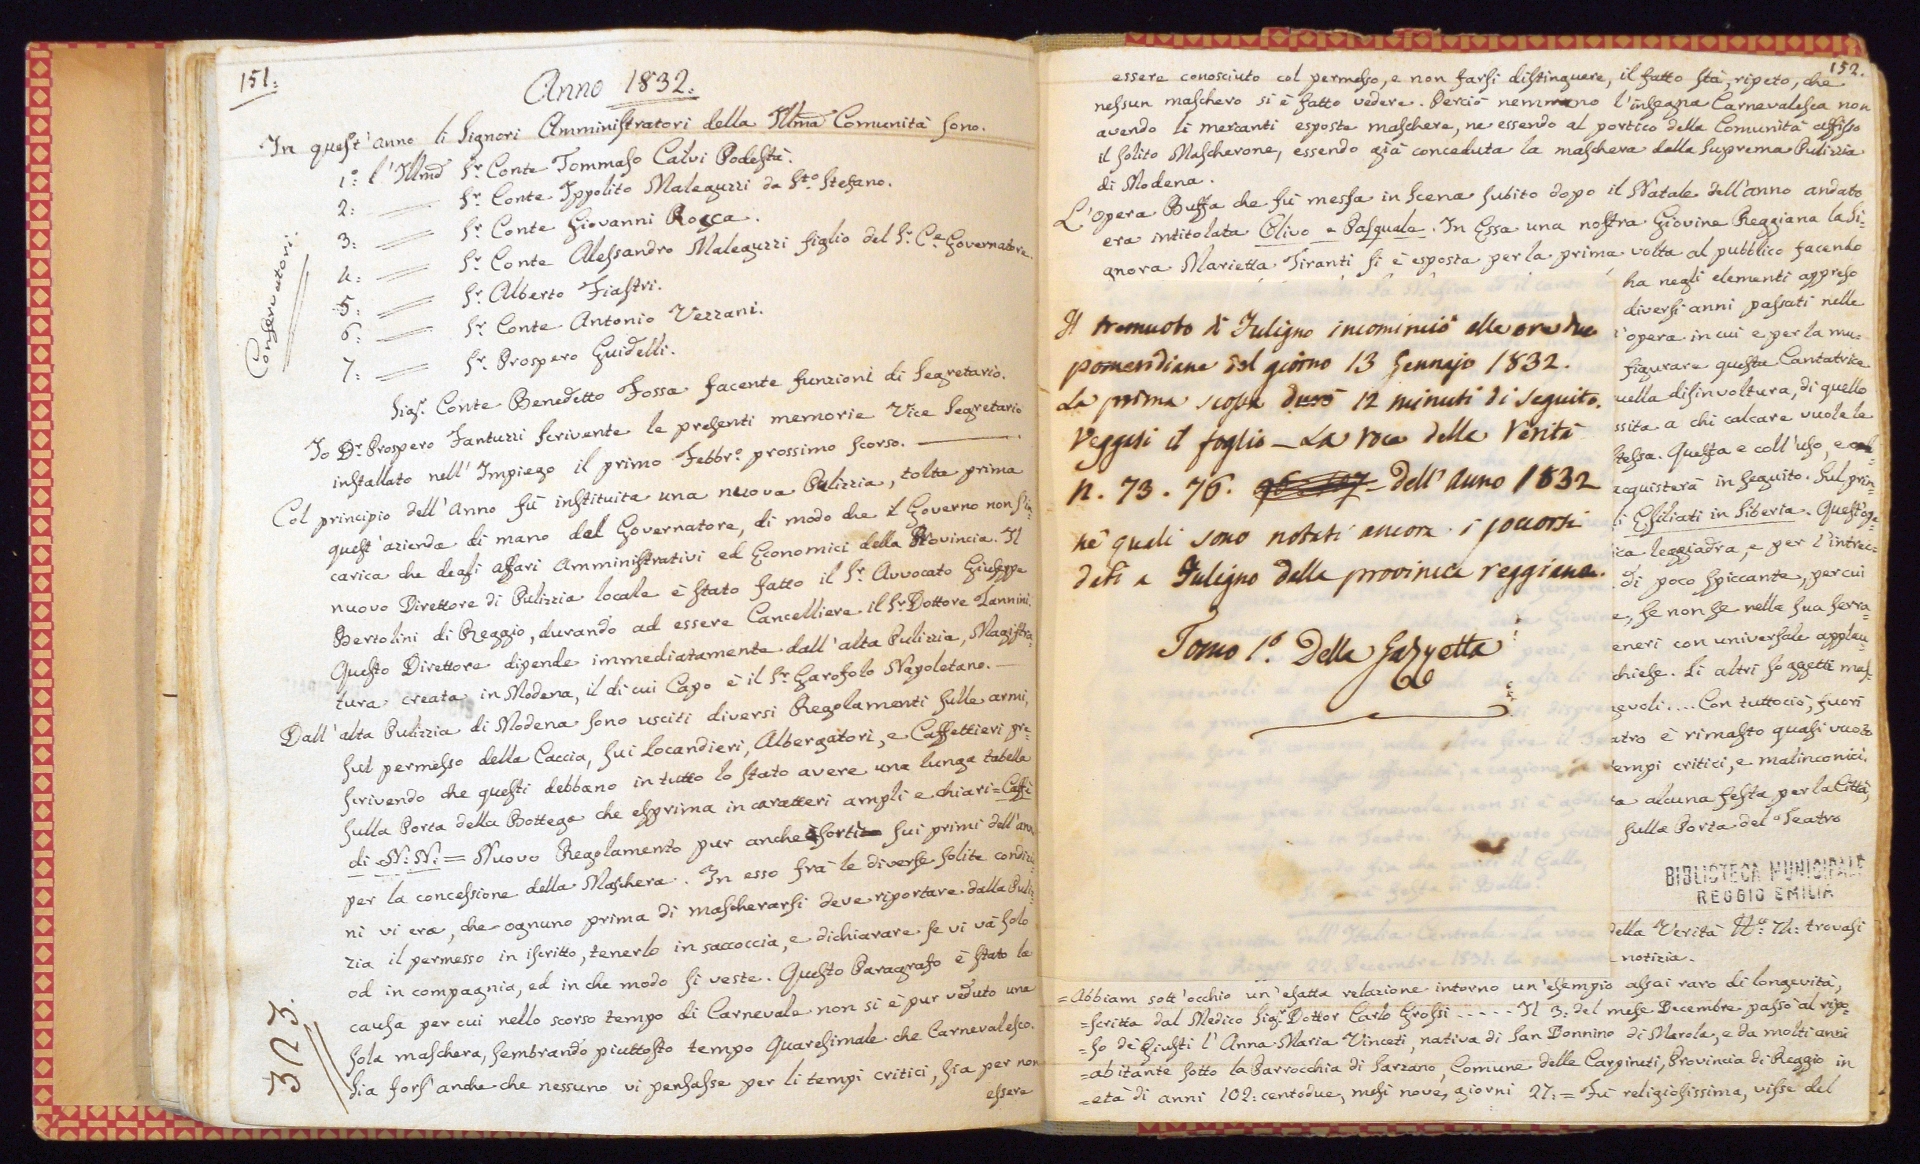 151:
Anno 1832.
In quest'anno li Signori Amministratori della Illma Comunità sono.
Conservatori:
1°: l'Illmo Sr. Conte Tommaso Calvi Podestà.
2: Sr. Conte Ippolito Maleguzzi da Sto. Stefano.
3: Sr. Conte Giovanni Rocca.
4: Sr. Conte Alessandro Maleguzzi figlio del Sr. Ce. Governatore.
5: Sr. Alberto Fiastri.
6: Sr. Conte Antonio Vezzani.
7: Sr. Prospero Guidelli.
Sigr. Conte Benedetto Fossa facente funzioni di Segretario.
Io Dr. Prospero Fantuzzi scrivente le presenti memorie Vice Segretario
installato nell'Impiego il primo Febbr° prossimo scorso.
Col principio dell'Anno fù instituita una nuova Pulizzia, tolta prima
quest'azienda di mano del Governatore, di modo che il Governo non s'in-
carica che degli affari Amministrativi ed Economici della Provincia. Il
nuovo Direttore di Pulizzia locale è stato fatto il Sr. Avvocato Giuseppe
Bertolini di Reggio, durando ad essere Cancelliere il Sr. Dottore Zannini.
Questo Direttore dipende immediatamente dall'alta Pulizzia, Magistra-
tura creata in Modena, il di cui Capo è il Sr. Garofolo Napoletano.
Dall'alta Pulizzia di Modena sono usciti diversi Regolamenti sulle armi,
sul permesso della Caccia, sui Locandieri, Albergatori, e Caffettieri pre-
scrivendo che questi debbano in tutto lo stato avere una lunga tabella
sulla Porta della Bottega che esprima in caratteri ampli e chiari = Caffè
di N: N: = Nuovo Regolamento pur anche sortì sui primi dell'anno
per la concessione della Maschera. In esso frà le diverse solite condizio-
ni vi era, che ognuno prima di mascherarsi deve riportare dalla Puliz-
zia il permesso in iscritto, tenerlo in saccoccia, e dichiarare se vi và solo
od in compagnia, ed in che modo si veste. Questo Paragrafo è stato la
causa per cui nello scorso tempo di Carnevale non si è pur veduto una
sola maschera, sembrando piuttosto tempo Quaresimale che Carnevalesco.
Sia fors'anche che nessuno vi pensasse per li tempi critici, sia per non
essere
323.
152.
essere conosciuto col permesso, e non farsi distinguere, il fatto stà, ripeto, che
nessun maschero si è fatto vedere. Perciò nemmeno l'insegna Carnevalesca non
avendo li mercanti esposte maschere, ne essendo al portico della Comunità affisso
il solito Mascherone, essendo già conceduta la maschera dalla Suprema Pulizzia
di Modena.
L'opera Buffa che fù messa in scena subito dopo il Natale dell'anno andato
era intitolata Olivo e Pasquale. In Essa una nostra Giovine Reggiana la Si-
gnora Marietta Tiranti si è esposta per la prima volta al pubblico facendo
Il tremuoto di Fuligno incominciò alle ore due
pomeridiane del giorno 13 Gennajo 1832.
La prima scopa durò 12 minuti di seguito.
Veggasi il foglio – La Voce della Verità
N. 73. 76. dell'anno 1832
nè quali sono notati ancora i soccorsi
dati a Fuligno dalla provincia reggiana.
Tomo 1°. Della Gazzetta
ha negli elementi appreso
diversi anni passati nelle
l'opera in cui e per la mu-
figurare questa Cantatrice
uella disinvoltura, di quello
ssita a chi calcare vuole le
tessa. Questa e coll'uso, e
acquisterà in seguito. Sul prin-
i Esiliati in Siberia. Quest'ope-
ica leggiadra, e per l'intrec-
di poco spiccante, per cui
e, se non se nella sua serra-
eneri con universale applau-
chiese. Li altri soggetti mas-
gevoli.... Con tuttociò, fuori
atro è rimasto quasi vuoto
tempi critici, e malinconici.
a alcuna festa per la Città,
sulla Porta del Teatro
BIBLIOTECA MUNICIPALE
REGGIO EMILIA
della Verità N°: 74: trovasi
notizia.
=Abbiam sott'occhio un'esatta relazione intorno un'esempio assai raro di longevità,
=scritta dal Medico Sigr. Dottor Carlo Grossi ..... Il 3: del mese Decembre passò al ripo-
=so dè Giusti l'Anna Maria Vinceti, nativa di San Donnino di Marola, e da molti anni
=abitante sotto la Parrocchia di Sarzano, Comune delle Carpineti, Provincia di Reggio in
=età di anni 102: centodue, mesi nove, giorni 27: = Fù religiosissima, visse del